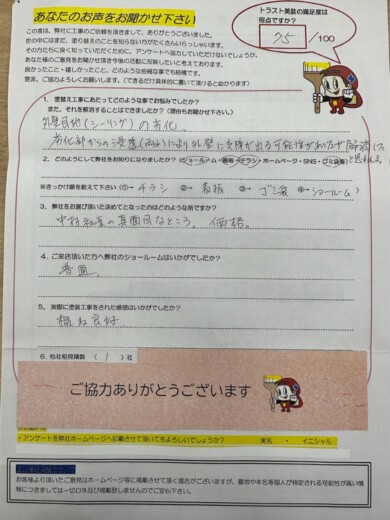 あなたのお声をお聞かせ下さい
この度は、弊社に工事のご依頼を頂きまして、ありがとうございました。
世の中にはまだ、塗り替えのことを知らない方がたくさんいらっしゃいます。
そのかたたちに良く知っていただくために、アンケートへ協力していただけないでしょうか。
あなた様のご意見をお聞かせ頂き今後の活動に反映したいと考えております。
良かったこと・嬉しかったこと、どのような些細な事でも結構です。
是非、ご協力よろしくお願いします。(できるだけ具体的に書いて頂けると助かります)
トラスト美装の満足度は
何点ですか?
75 /100
1. 塗替え工事にあたってどのような事でお悩みでしたか?
また、それを解消することはできましたか?(理由もお聞かせ下さい)
外壁目地(シーリング)の劣化。
劣化部からの浸透(雨水)により外壁に支障が出る可能性があったが
2. どのようにして弊社をお知りになりましたか?(ショールーム・看板・チラシ・ホームページ・SNS・ゴミ袋)
※きっかけ順を教えて下さい(①→ チラシ ②→ 看板 ③→ ゴミ袋 ④→ショールーム)
3. 弊社をお選び頂いた決めてとなったのはどのような所ですか?
の真面目なところ。価格。
4. ご来店頂いた方へ弊社のショールームはいかがでしたか?
普通。
5. 実際に塗装工事をされた感想はいかがでしたか?
概ね良好
6. 他社相見積数 ( 1 ) 社
ご協力ありがとうございます
・アンケートを弊社ホームページへ記載させて頂いてもよろしいでしょうか? 実名 ・ イニシャル
お客様より頂いたご意見はホームページ等に掲載させて頂く場合がございますが、番地や本名等個人が特定される可能性が高い情
報につきましては一切口外及び掲載致しませんのでご安心下さい。